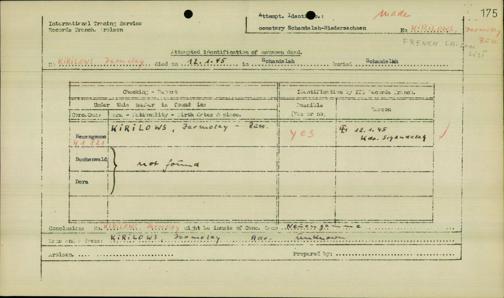 175
International Tracing Service
Records Branch, Arolsen
Attempt. Identif. :
cemetery Schandelah-Niedersachsen
made
No KIRILOWS, Jarmolay
FRENCH
Attempted identification of unknown dead.
No KIRILOWS, Jarmolay died on 12.1.45 in Schandelah buried Schandelah
Checking - Report
Identification by ITS Records Branch.
Under this number is found in:
Possible
Reason
Conc.Camp
Name - Nationality - Birth Dates & place.
(Yes or no)
Neuengamme
KIRILOWS, Jarmolay - Russ.
YES
12.1.45
Kdo. Schandelah
Buchenwald
not found
Dora
Conclusion: No. KIRILOWS, Jarmolay might be inmate of Conc. Camp Neuengamme
KIRILOWS, Jarmolay Russ. unknown
Arolsen, Prepared by: